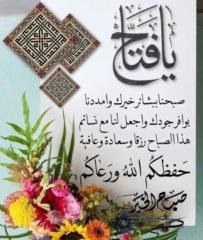 يا فتاح
صبحنا بشائر خيرك وامددنا
بوافر جودك واجعل لنا مع نسائم
هذا الصباح رزقا وسعادة وعافية
حفظكم الله ورعاكم
صباح الخير